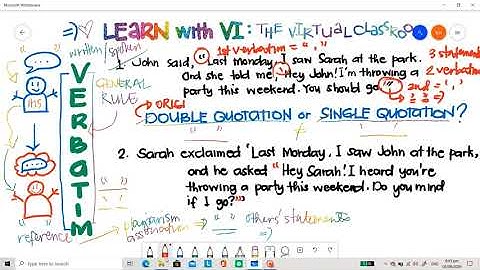 Microsoft Whiteboard
=) LEARN with VI: THE VIRTUAL CLASSROO
written/spoken
1st verbatim = " "
1. John said, "Last Monday, I saw Sarah at the park.
And she told me, 'Hey John! I'm throwing a
party this weekend. You should go.'"
3 statements
2 verbatim
2nd = ' '
GENERAL
RULE
VERBATIM
HIS
" "
DOUBLE QUOTATION or SINGLE QUOTATION?
" " ' '
2. Sarah exclaimed 'Last Monday, I saw John at the park,
and he asked "Hey Sarah! I heard you're
throwing a party this weekend. Do you mind
if I go?"'
" "
reference
plagiarism
" " others' statements
=)
Type here to search